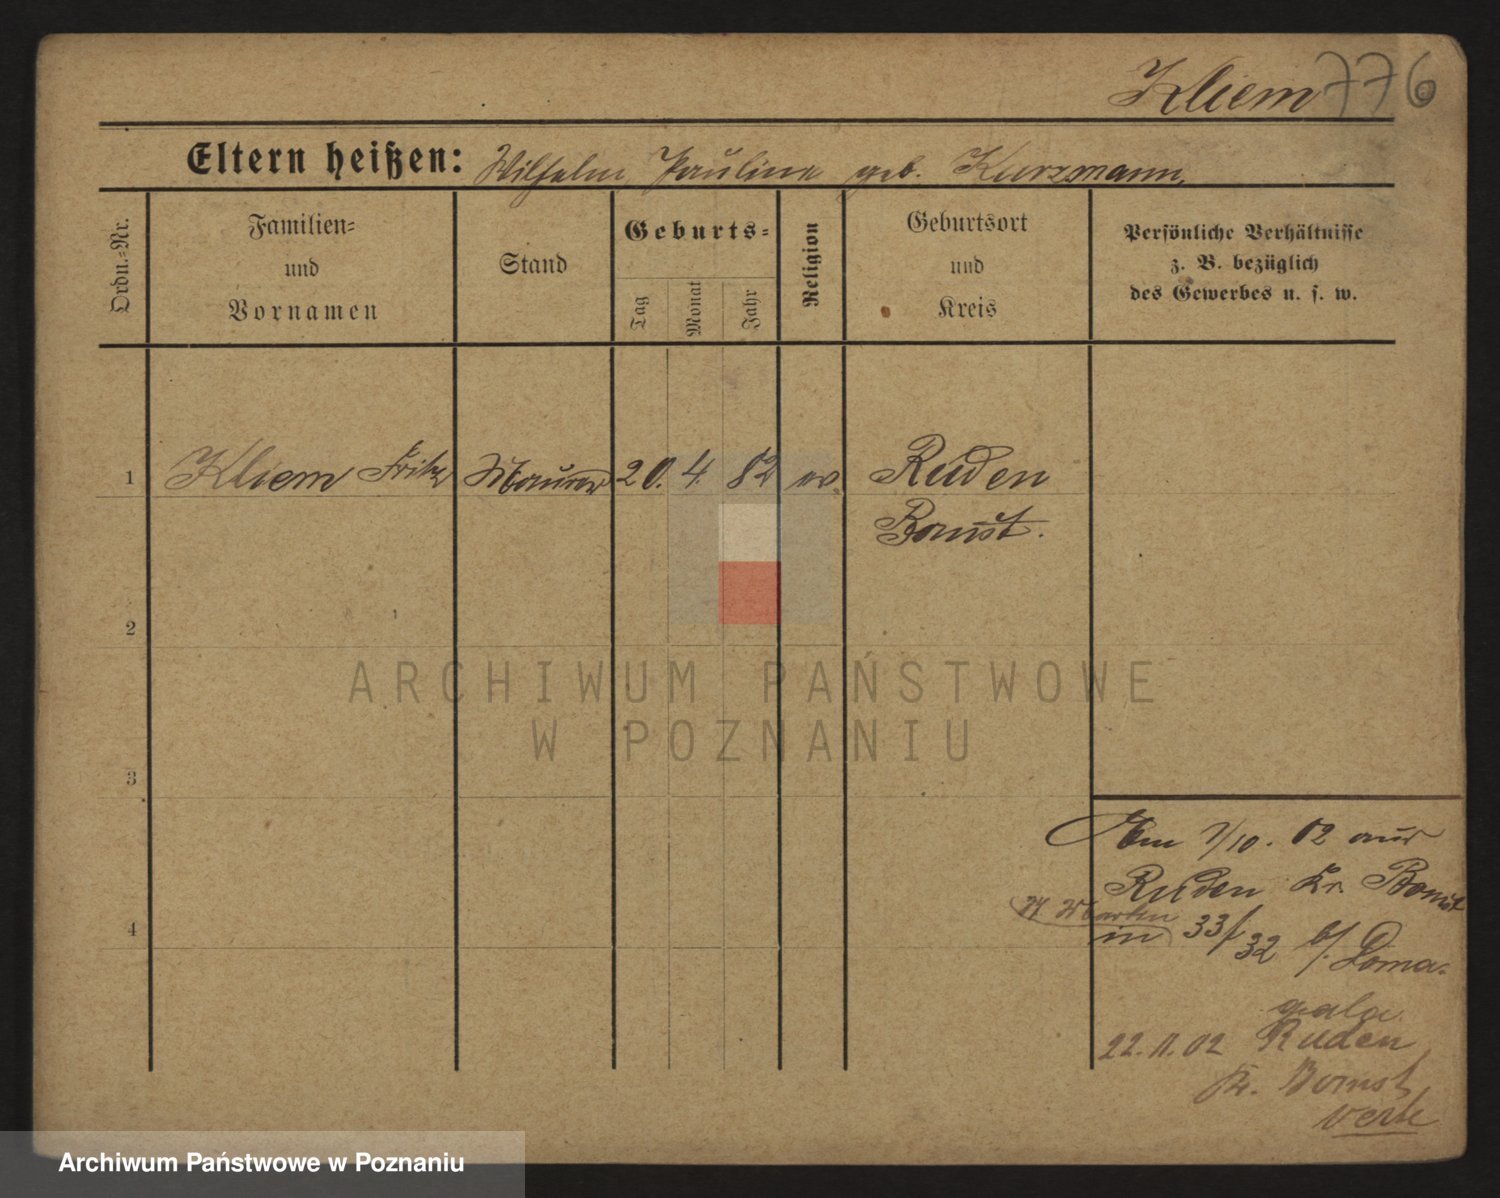 Kliem 776
Eltern heißen: Wilhelm, Pauline geb. Kurzmann.
Ordn.-Nr.
Familien-
und
Vornamen
Stand
Geburts-
Tag
Monat
Jahr
Religion
Geburtsort
und
Kreis
Persönliche Verhältnisse
z. B. bezüglich
des Gewerbes u. s. w.
1 Kliem Fritz Maurer 20. 4. 82 ev Ruden
Bomst.
2
3
4
Am 7/10. 02 aus
Ruden Kr. Bomst
in 33/32 b/ Doma-
gala
22.11.02 Ruden
Kr. Bomst
ARCHIWUM PAŃSTWOWE
W POZNANIU
Archiwum Państwowe w Poznaniu